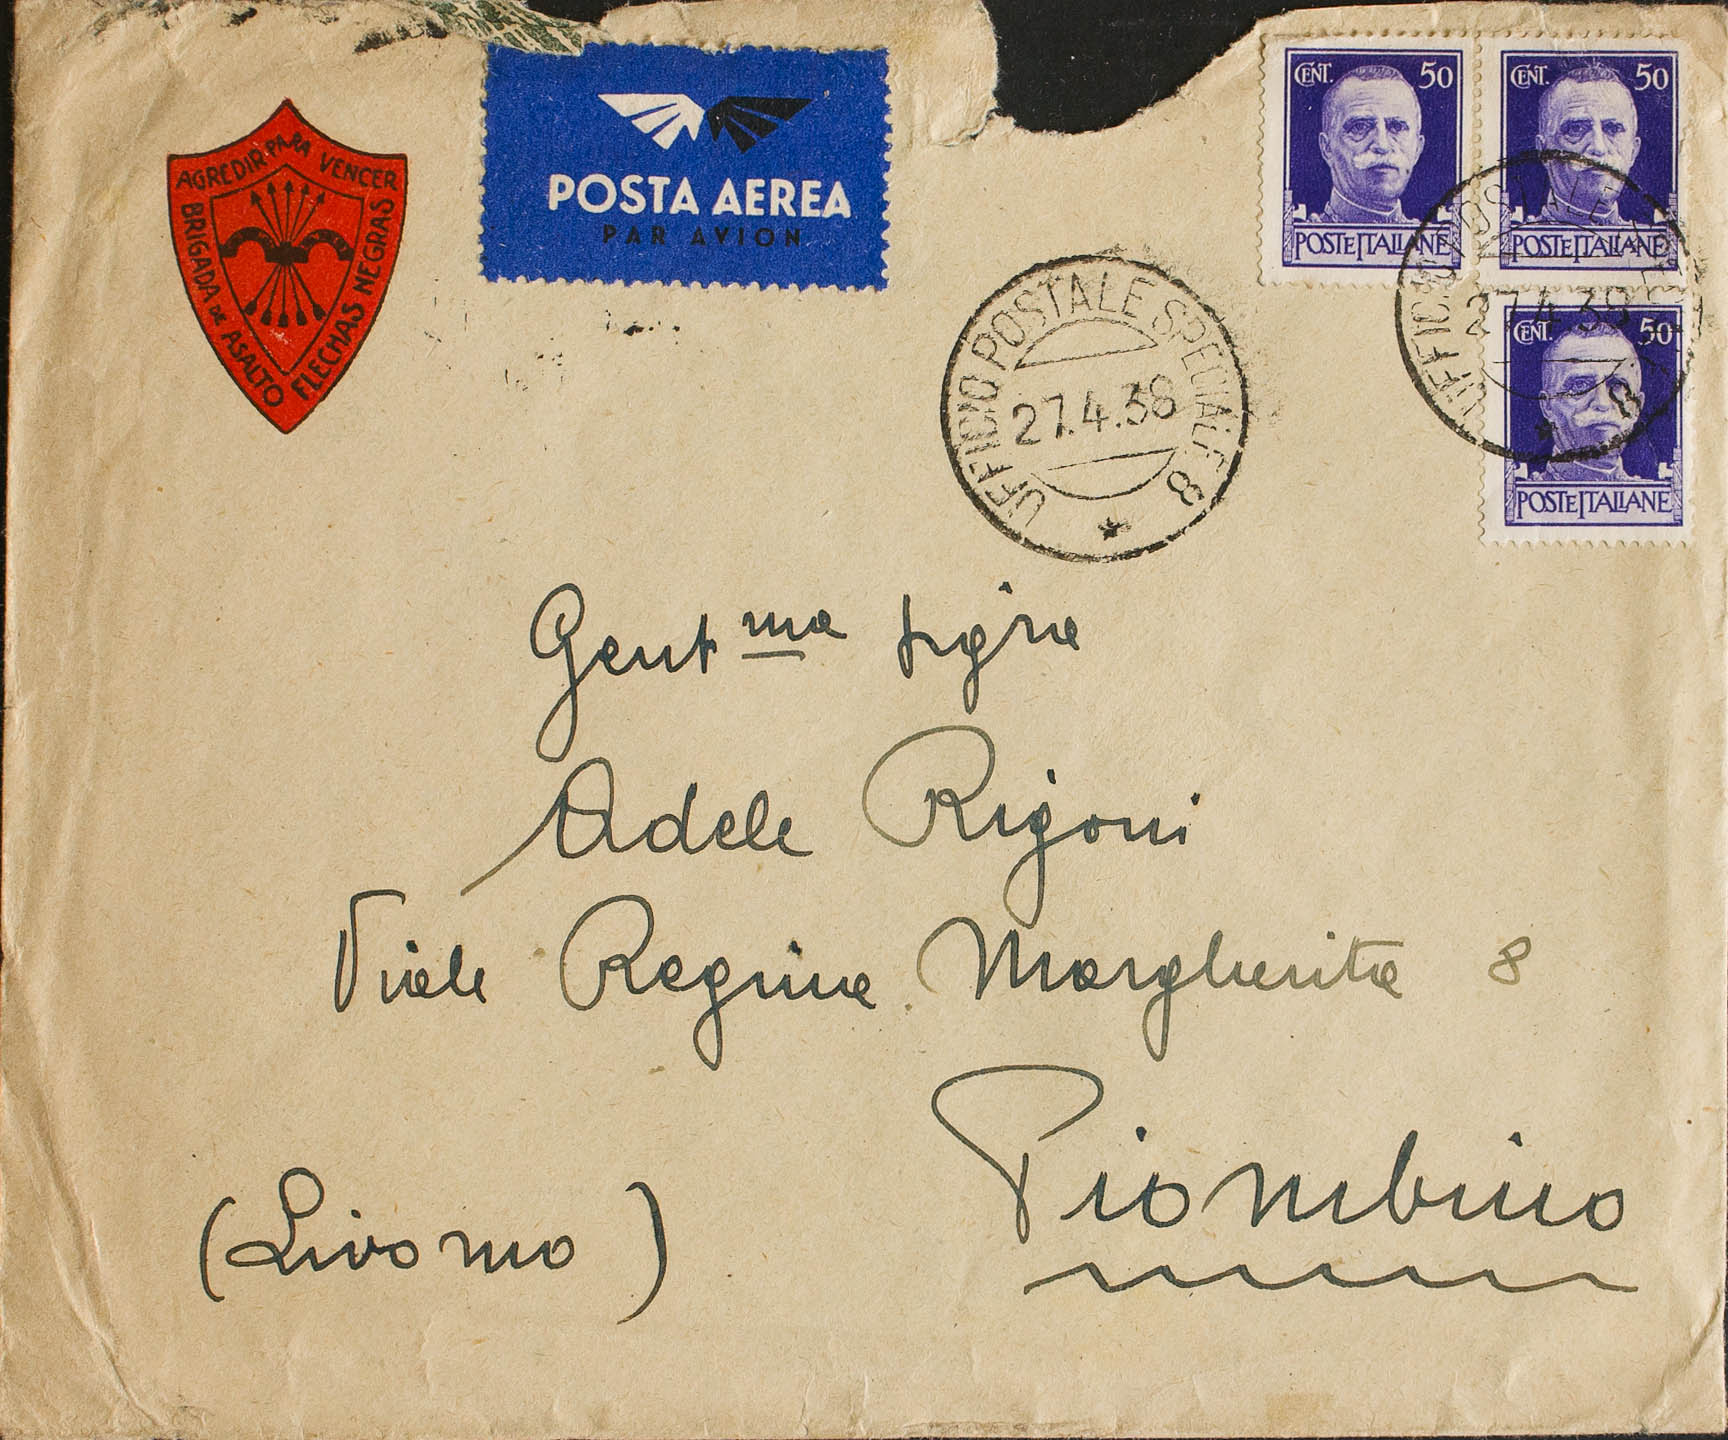 AGREDIR PARA VENCER
BRIGADA DE ASALTO
FLECHAS NEGRAS
POSTA AEREA
PAR AVION
CENT. 50
POSTE ITALIANE
CENT. 50
POSTE ITALIANE
CENT. 50
POSTE ITALIANE
UFFICIO POSTALE SPECIALE 8
27.4.38
UFFICIO POSTALE SPECIALE 8
27.4.38
Gent ma sigra
Adele Rigoni
Viale Regina Margherita 8
Piombino
(Livorno)